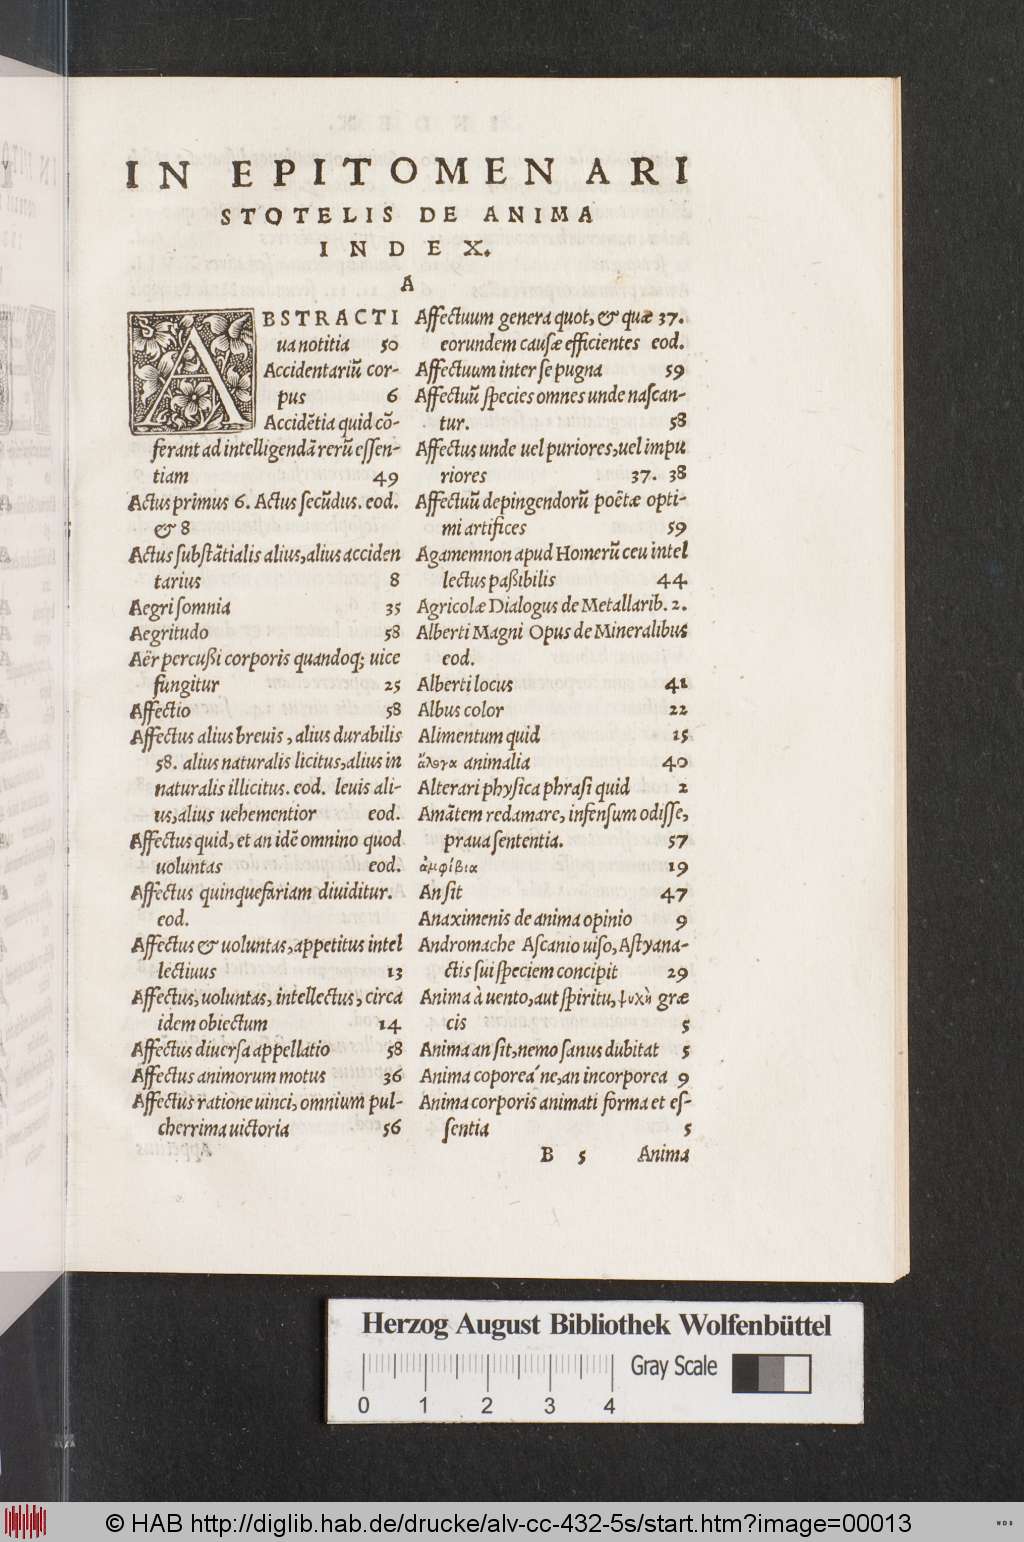 IN EPITOMEN ARI
STOTELIS DE ANIMA
INDEX.
A
ABSTRACTI
ua notitia 50
Accidentariũ cor-
pus 6
Accidẽtia quid cõ-
ferant ad intelligendã rerũ essen-
tiam 49
Actus primus 6. Actus secũdus. eod.
& 8
Actus substãtialis alius, alius acciden
tarius 8
Aegri somnia 35
Aegritudo 58
Aër percußi corporis quandoq; uice
fungitur 25
Affectio 58
Affectus alius breuis, alius durabilis
58. alius naturalis licitus, alius in
naturalis illicitus. eod. leuis ali-
us, alius uehementior eod.
Affectus quid, et an idẽ omnino quod
uoluntas eod.
Affectus quinquefariam diuiditur.
eod.
Affectus & uoluntas, appetitus intel
lectiuus 13
Affectus, uoluntas, intellectus, circa
idem obiectum 14
Affectus diuersa appellatio 58
Affectus animorum motus 36
Affectus ratione uinci, omnium pul-
cherrima uictoria 56
Affectuum genera quot, & quæ 37.
eorundem causæ efficientes eod.
Affectuum inter se pugna 59
Affectuũ species omnes unde nascan-
tur. 58
Affectus unde uel puriores, uel impu
riores 37. 38
Affectuũ depingendorũ poëtæ opti-
mi artifices 59
Agamemnon apud Homerũ ceu intel
lectus paßibilis 44
Agricolæ Dialogus de Metallarib. 2.
Alberti Magni Opus de Mineralibus
eod.
Alberti locus 41
Albus color 22
Alimentum quid 15
ἄλογα animalia 40
Alterari physica phrasi quid 2
Amãtem redamare, infensum odisse,
praua sententia. 57
ἀμφίβια 19
An sit 47
Anaximenis de anima opinio 9
Andromache Ascanio uiso, Astyana-
ctis sui speciem concipit 29
Anima à uento, aut spiritu, ψυχὴ græ
cis 5
Anima an sit, nemo sanus dubitat 5
Anima coporea ́ne, an incorporea 9
Anima corporis animati forma et es-
sentia 5
B 5 Anima
Herzog August Bibliothek Wolfenbüttel
Gray Scale
0 1 2 3 4
© HAB http://diglib.hab.de/drucke/alv-cc-432-5s/start.htm?image=00013